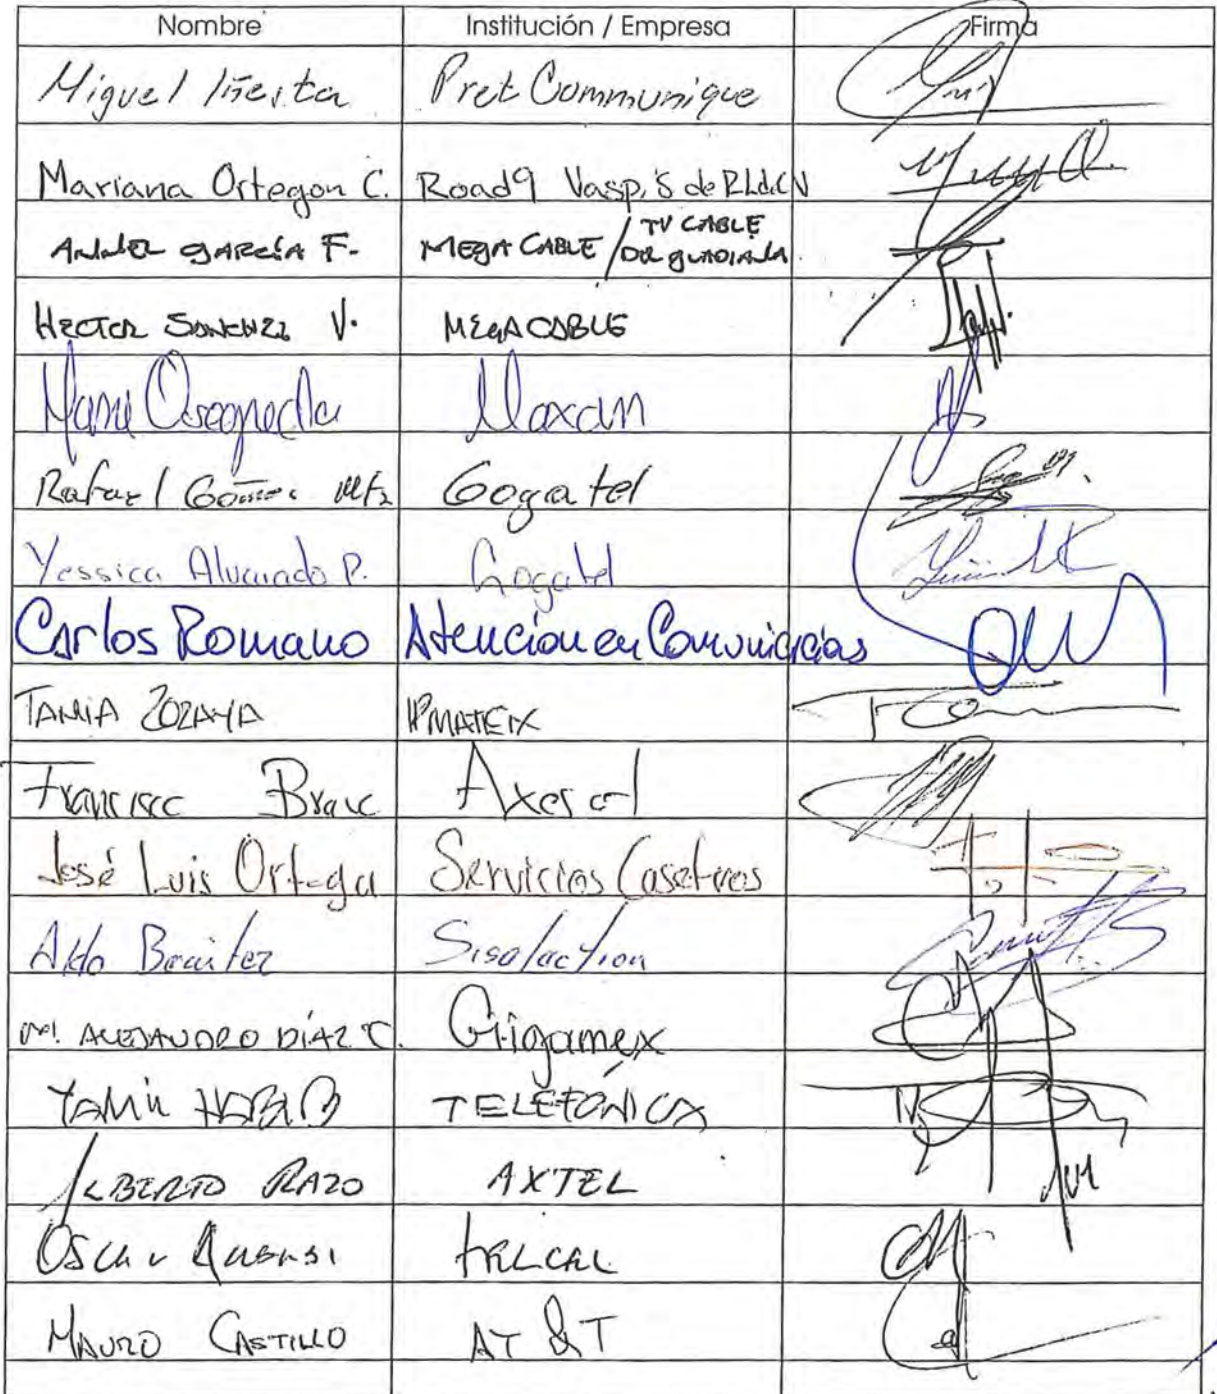 Nombre Institución / Empresa Firma
Miguel Iñesta Pret Communique
Mariana Ortegon C. Road9 Vasp, S de RL de CV
ANGEL GARCÍA F. MEGA CABLE / TV CABLE
DEL GUADIANA
HECTOR SANCHEZ V. MEGACABLE
Maxcom
Rafael Gómez Mtz Gogatel
Yessica Alvarado P. Gogatel
Carlos Romano Atención en Comunicacións
TANIA ZOZAYA IPMATEIX
Francisco Bravo Axesat
José Luis Ortega Servicios Caseteros
Aldo Benitez
M. ALEJANDRO DÍAZ C. Gigamex
YAMIL TELEFÓNICA
ALBERTO RAZO AXTEL
Oscar TELCEL
MAURO CASTILLO AT&T